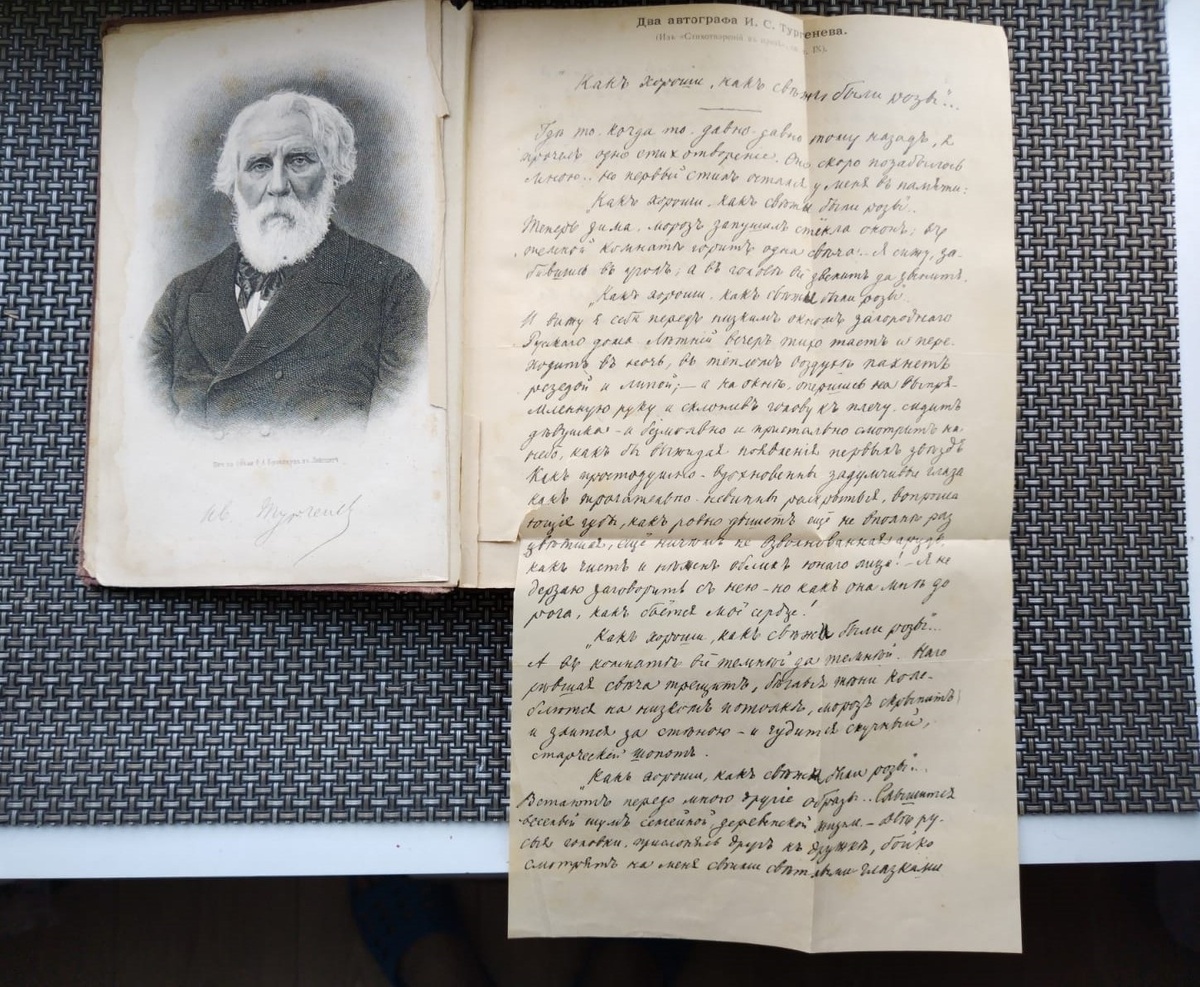 Ив. Тургенев
Два автографа И. С. Тургенева.
(Изъ «Стихотвореній въ прозѣ», IX).
Какъ хороши, какъ свѣжи были розы...
Гдѣ то, когда то, давно-давно тому назадъ, я
прочелъ одно стихотвореніе. Оно скоро позабылось
мною.. но первый стихъ остался у меня въ памяти:
„Какъ хороши, какъ свѣжи были розы..
Теперь зима. морозъ запушилъ стёкла оконъ; въ
темной комнатѣ горитъ одна свѣча. Я сижу, за-
бившись въ уголъ; а въ головѣ всё звенитъ да звенитъ.
„Какъ хороши. какъ свѣжи были розы..
И вижу я себя передъ низкимъ окномъ загороднаго
Русскаго дома. Лѣтній вечеръ тихо таетъ и пере-
ходитъ въ ночь, въ тепломъ воздухѣ пахнетъ
резедой и липой; — а на окнѣ, опершись на выпря-
мленную руку и склонивъ голову къ плечу. сидитъ
дѣвушка — и безмолвно и пристально смотритъ на
небо, какъ бы выжидая появленія первыхъ звѣздъ
Какъ простодушно-вдохновенны задумчивые глаза
какъ трогательно-невинны раскрытыя, вопроша
ющія губы, какъ ровно дышетъ ещё не вполнѣ рас
цвѣтшая, ещё ничѣмъ не взволнованная грудь,
какъ чистъ и нѣженъ обликъ юнаго лица! — Я не
дерзаю заговорить съ нею — но какъ она мнѣ до
рога, какъ бьётся моё сердце!
„Какъ хороши, какъ свѣжи были розы...
А въ комнатѣ всё темнѣй да темнѣй. Наго
рѣвшая свѣча трещитъ, бѣглыя тѣни коле-
блются на низкомъ потолкѣ, морозъ скрыпитъ
и злится за стѣною — и чудится скучный,
старческій шопотъ.
„Какъ хороши, какъ свѣжи были розы...
Встаютъ передо мною другіе образы.. Слышится
веселый шумъ семейной деревенской жизни. — Двѣ ру-
сыя головки, прислонясь другъ къ дружкѣ, бойко
смотрятъ на меня своими свѣтлыми глазками